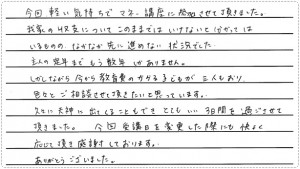 今回軽い気持ちでマネー講座に参加させて頂きました。
我家の収支についてこのままではいけないと分かっては
いるものの、なかなか先に進めない状況でした
主人の定年まで もう数年しかありません。
しかしながら今から教育費のかかる子どもが三人もおり
色々とご相談させて頂きたいと思っています。
久々に天神に出てくることもでき とてもいい3日間を過ごさせて
頂きました。 今回 受講日を変更した際にも快よく
応じて頂き感謝しております。
ありがとうございました。